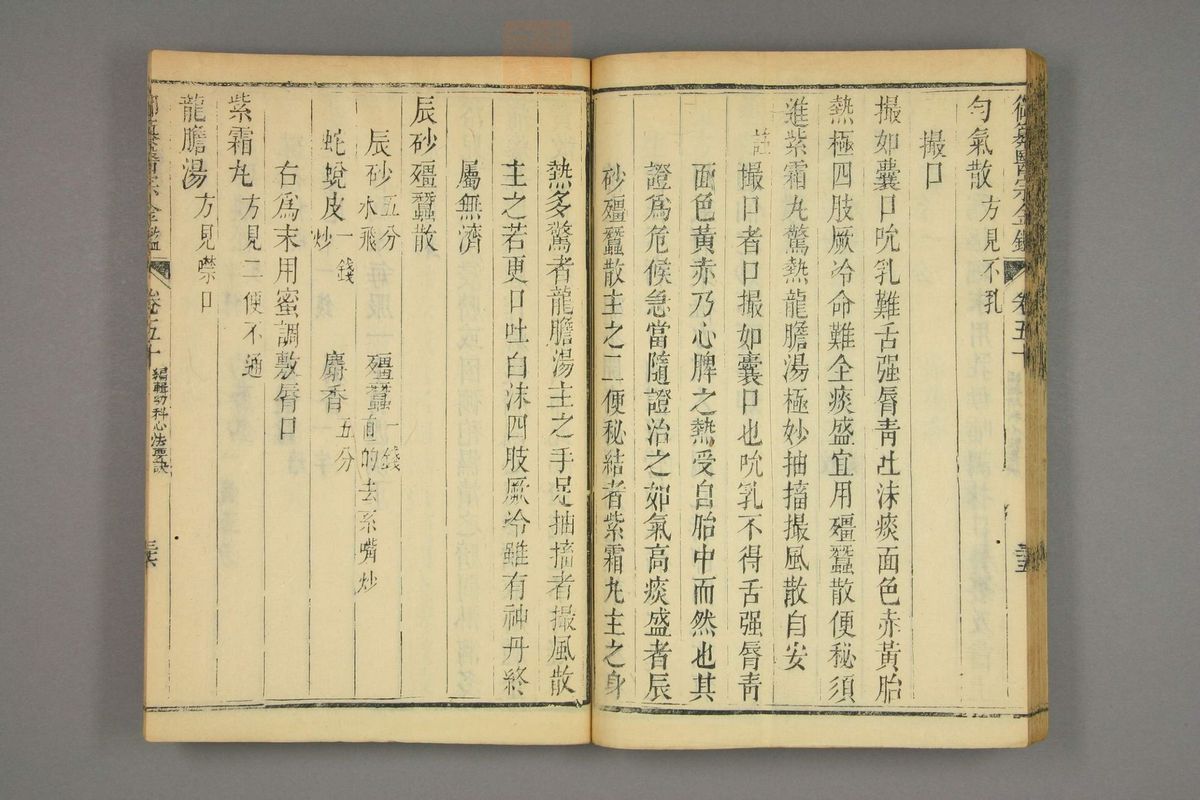 御纂醫宗金鑑 卷五十 三五
勻氣散方見不乳
撮口
撮如囊口吮乳難舌强脣青吐沫痰面色赤黃胎
熱極四肢厥冷命難全痰盛宜用殭蠶散便秘須
進紫霜丸驚熱龍膽湯極妙抽搐撮風散自安
註撮口者口撮如囊口也吮乳不得舌强脣青
面色黃赤乃心脾之熱受自胎中而然也其
證爲危候急當隨證治之如氣高痰盛者辰
砂殭蠶散主之二便秘結者紫霜丸主之身
熱多驚者龍膽湯主之手足抽搐者撮風散
主之若更口吐白沫四肢厥冷雖有神丹終
屬無濟
辰砂殭蠶散
辰砂五分水飛 殭蠶一錢直的去系嘴炒
蛇蛻皮一錢炒 麝香五分
右爲末用蜜調敷脣口
紫霜丸方見二便不通
龍膽湯方見噤口
御纂醫宗金鑑 卷五十 編輯幼科心法要訣 三六